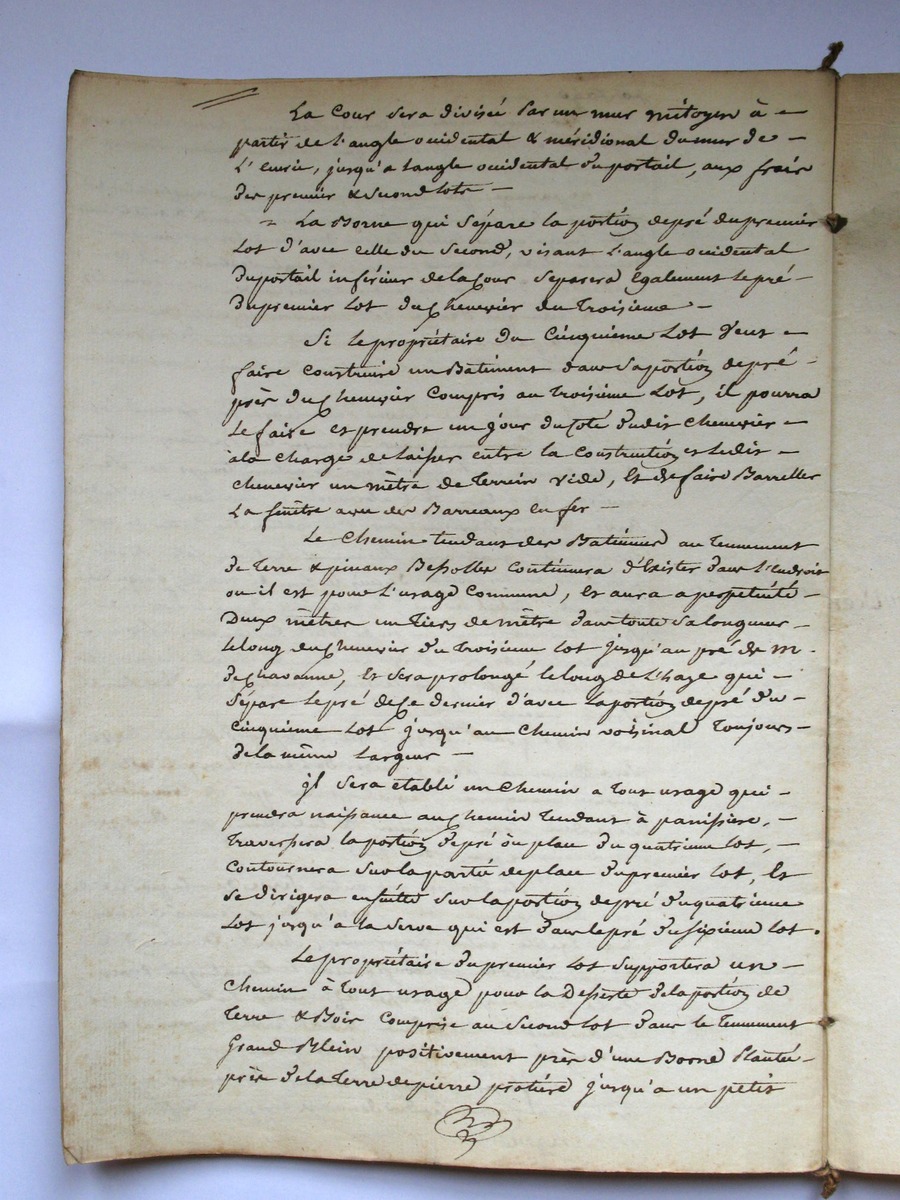 La Cour sera divisée par un mur mitoyen à
partir de l'angle occidental & méridional du mur de
L'eurie, jusqu'a langle occidental du portail, aux frais
des premier & second lots
La Borne qui sépare la portion depré dupremier
Lot d'avec celle du second, visant l'angle occidental
duportail inférieur delaCour séparera également lepré
dupremier Lot duchenevier du troisieme
Si le propriétaire du Cinquieme Lot veut
faire construire un Batiment dans sa portion depré
près du chenevier compris au troisieme Lot, il pourra
le faire et prendre un jour du coté dudit chenevier
àla charge de laisser entre la construction et ledit
chenevier un mètre de terrein vide, Et de faire Barreller
La fenêtre avec des Barreaux en fer
Le chemin tendant des Batiments au tennement
de terre & pinaux Bessolles continuera d'Exister dans l'endroit
ou il est pour l'usage commune, Et aura a perpétuité
Deux mètres un tiers de mètre dans toute sa longueur
le long du chenevier du troisieme lot jusqu'au pré de M.
de chavanne, Et sera prolongé le long de l'haye qui
sépare lepré de ce dernier d'avec la portion depré du
cinquieme Lot jusqu'au chemin voisinal toujours
dela même largeur
jl sera etabli un chemin a tout usage qui
prendra naissance au chemin tendant à panissiere,
traversera la portion depré ou place du quatrieme Lot,
contournera sur la partie deplace dupremier Lot, Et
se dirigera ensuite sur la portion depré duquatrieme
Lot jusqu'a la serve qui est dans lepré dusixieme Lot.
Le propriétaire dupremier Lot supportera un
chemin à tout usage pour la Desserte de laportion de
terre & Bois comprise au second Lot dans le tennement
Grand Blein positivement près d'une Borne plantée
près dela terre depierre protiere jusqu'a un petit